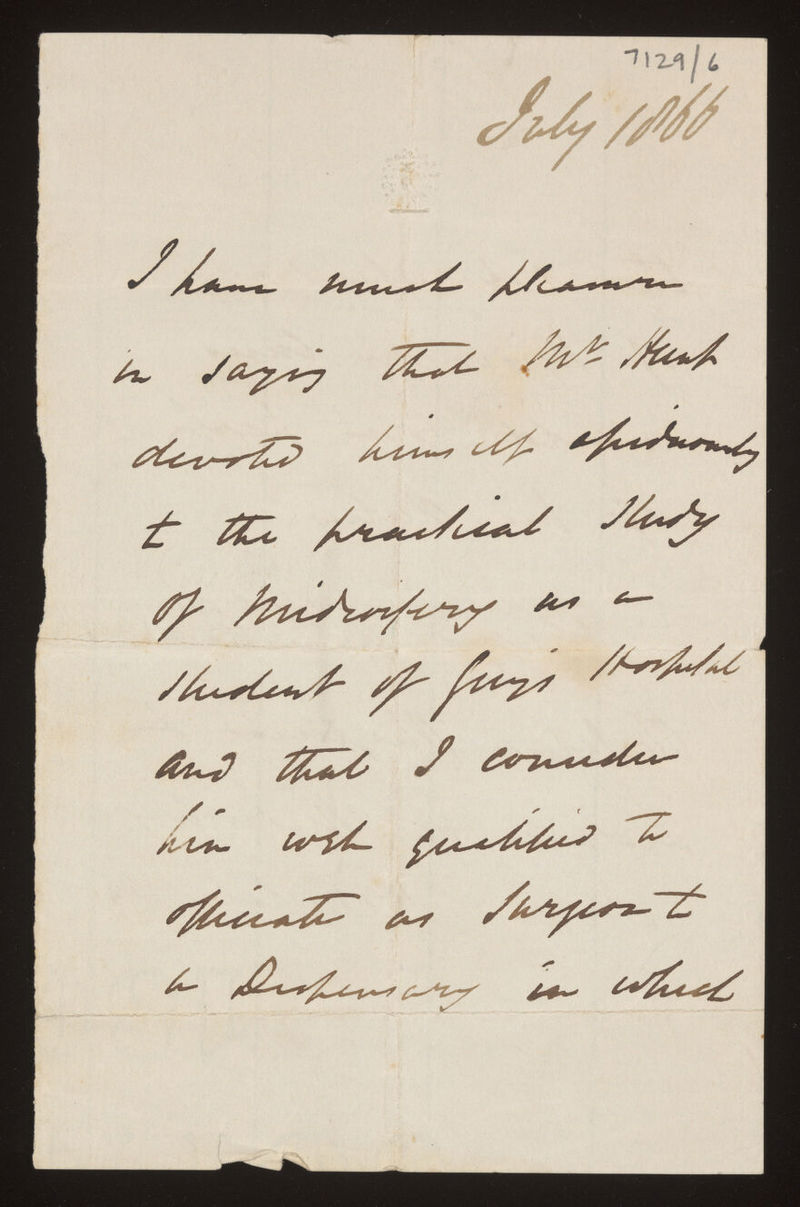 7129/6
July 1866
I have much pleasure
in saying that Mr Hunt
devoted himself assiduously
to the practical Study
of Midwifery as a
student of Guy's Hospital
and that I consider
him well qualified to
officiate as Surgeon to
a Dispensary in which